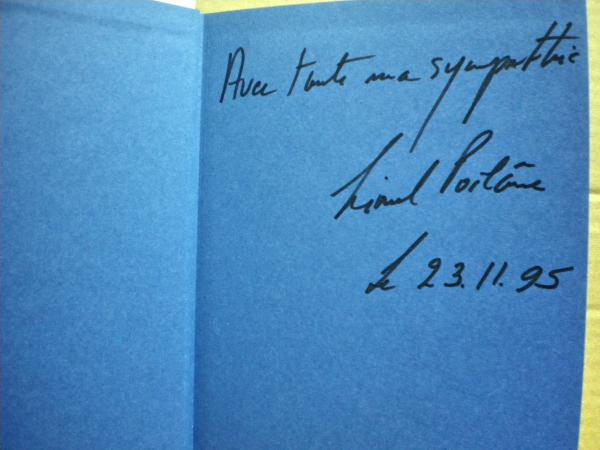 Avec toute ma sympathie
Lionel Poilâne
Le 23.11.95